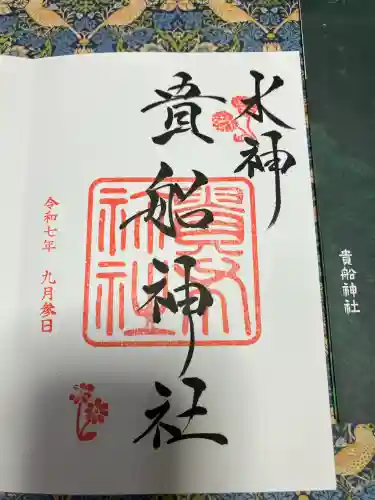 水神
貴船神社
貴船神社
令和七年 九月参日
貴船神社